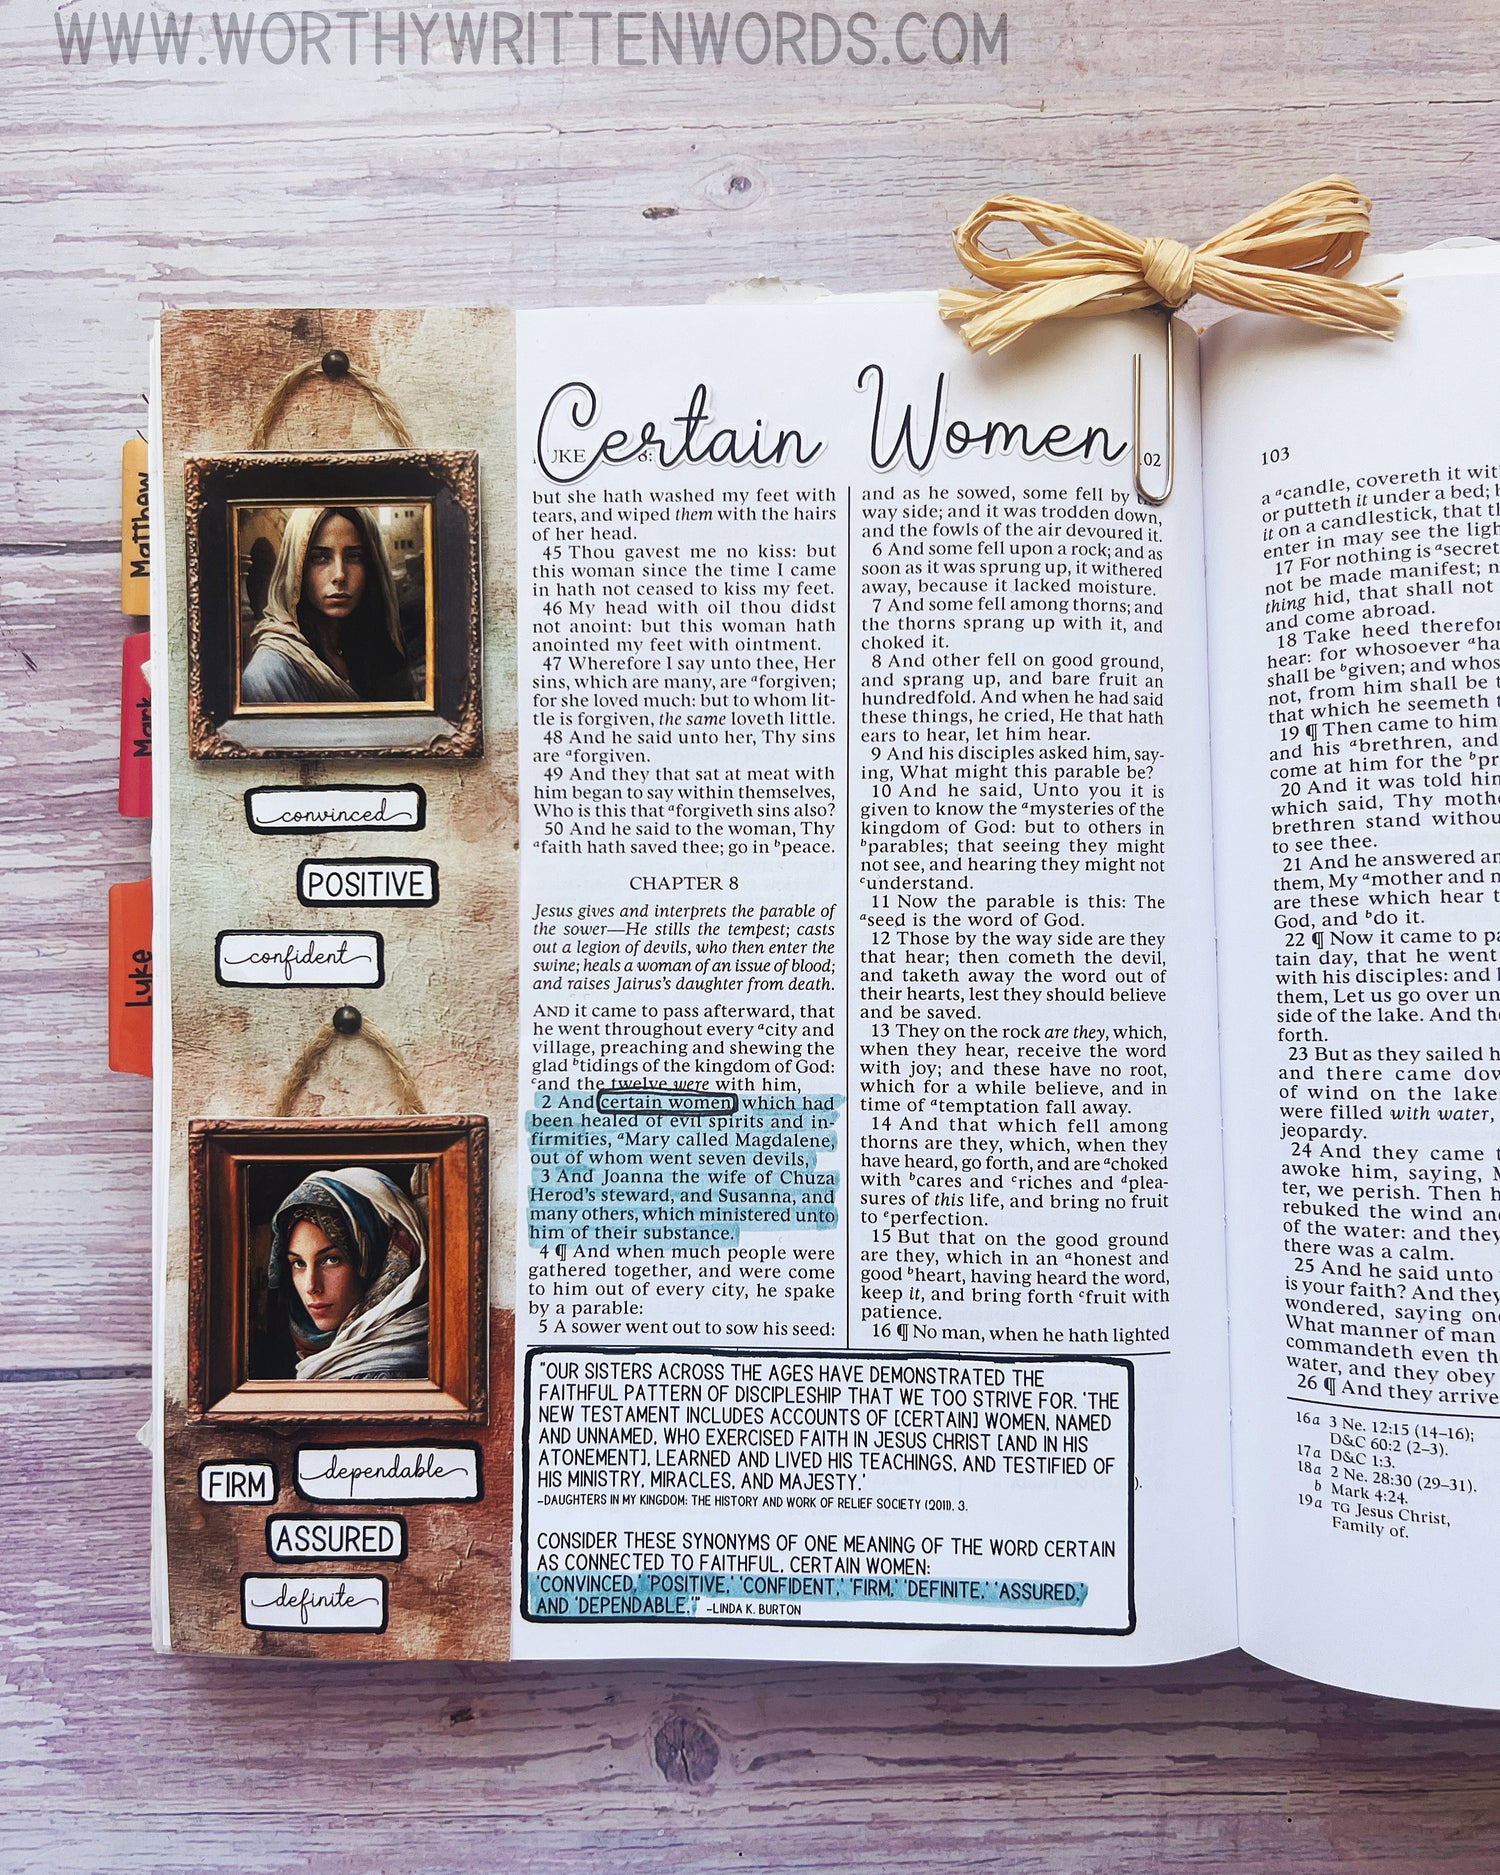 WWW.WORTHYWRITTENWORDS.COM
Matthew
Mark
Luke
convinced
POSITIVE
confident
FIRM
dependable
ASSURED
definite
Certain Women
UKE 8:
02
but she hath washed my feet with
tears, and wiped them with the hairs
of her head.
45 Thou gavest me no kiss: but
this woman since the time I came
in hath not ceased to kiss my feet.
46 My head with oil thou didst
not anoint: but this woman hath
anointed my feet with ointment.
47 Wherefore I say unto thee, Her
sins, which are many, are ᵃforgiven;
for she loved much: but to whom lit-
tle is forgiven, the same loveth little.
48 And he said unto her, Thy sins
are ᵃforgiven.
49 And they that sat at meat with
him began to say within themselves,
Who is this that ᵃforgiveth sins also?
50 And he said to the woman, Thy
ᵃfaith hath saved thee; go in ᵇpeace.
CHAPTER 8
Jesus gives and interprets the parable of
the sower—He stills the tempest; casts
out a legion of devils, who then enter the
swine; heals a woman of an issue of blood;
and raises Jairus's daughter from death.
AND it came to pass afterward, that
he went throughout every ᵃcity and
village, preaching and shewing the
glad ᵇtidings of the kingdom of God:
ᶜand the twelve were with him,
2 And certain women which had
been healed of evil spirits and in-
firmities, ᵃMary called Magdalene,
out of whom went seven devils,
3 And Joanna the wife of Chuza
Herod's steward, and Susanna, and
many others, which ministered unto
him of their substance.
4 ¶ And when much people were
gathered together, and were come
to him out of every city, he spake
by a parable:
5 A sower went out to sow his seed:
and as he sowed, some fell by
way side; and it was trodden down,
and the fowls of the air devoured it.
6 And some fell upon a rock; and as
soon as it was sprung up, it withered
away, because it lacked moisture.
7 And some fell among thorns; and
the thorns sprang up with it, and
choked it.
8 And other fell on good ground,
and sprang up, and bare fruit an
hundredfold. And when he had said
these things, he cried, He that hath
ears to hear, let him hear.
9 And his disciples asked him, say-
ing, What might this parable be?
10 And he said, Unto you it is
given to know the ᵃmysteries of the
kingdom of God: but to others in
ᵇparables; that seeing they might
not see, and hearing they might not
ᶜunderstand.
11 Now the parable is this: The
ᵃseed is the word of God.
12 Those by the way side are they
that hear; then cometh the devil,
and taketh away the word out of
their hearts, lest they should believe
and be saved.
13 They on the rock are they, which,
when they hear, receive the word
with joy; and these have no root,
which for a while believe, and in
time of ᵃtemptation fall away.
14 And that which fell among
thorns are they, which, when they
have heard, go forth, and are ᵃchoked
with ᵇcares and ᶜriches and ᵈplea-
sures of this life, and bring no fruit
to ᵉperfection.
15 But that on the good ground
are they, which in an ᵃhonest and
good ᵇheart, having heard the word,
keep it, and bring forth ᶜfruit with
patience.
16 ¶ No man, when he hath lighted
"OUR SISTERS ACROSS THE AGES HAVE DEMONSTRATED THE
FAITHFUL PATTERN OF DISCIPLESHIP THAT WE TOO STRIVE FOR. 'THE
NEW TESTAMENT INCLUDES ACCOUNTS OF [CERTAIN] WOMEN, NAMED
AND UNNAMED, WHO EXERCISED FAITH IN JESUS CHRIST [AND IN HIS
ATONEMENT], LEARNED AND LIVED HIS TEACHINGS, AND TESTIFIED OF
HIS MINISTRY, MIRACLES, AND MAJESTY.'
-DAUGHTERS IN MY KINGDOM: THE HISTORY AND WORK OF RELIEF SOCIETY (2011), 3.
CONSIDER THESE SYNONYMS OF ONE MEANING OF THE WORD CERTAIN
AS CONNECTED TO FAITHFUL, CERTAIN WOMEN:
'CONVINCED,' 'POSITIVE,' 'CONFIDENT,' 'FIRM,' 'DEFINITE,' 'ASSURED,'
AND 'DEPENDABLE.'" -LINDA K. BURTON
).
103
a ᵃcandle, covereth it wit
or putteth it under a bed; b
it on a candlestick, that th
enter in may see the ligh
17 For nothing is ᵃsecret
not be made manifest; n
thing hid, that shall not
and come abroad.
18 Take heed therefor
hear: for whosoever ᵃha
shall be ᵇgiven; and whos
not, from him shall be t
that which he seemeth t
19 ¶ Then came to him
and his ᵃbrethren, and
come at him for the ᵇpr
20 And it was told him
which said, Thy moth
brethren stand withou
to see thee.
21 And he answered an
them, My ᵃmother and m
are these which hear t
God, and ᵇdo it.
22 ¶ Now it came to pa
tain day, that he went
with his disciples: and
them, Let us go over un
side of the lake. And the
forth.
23 But as they sailed h
and there came dow
of wind on the lake;
were filled with water,
jeopardy.
24 And they came t
awoke him, saying, M
ter, we perish. Then h
rebuked the wind and
of the water: and they
there was a calm.
25 And he said unto
is your faith? And they
wondered, saying one
What manner of man
commandeth even the
water, and they obey
26 ¶ And they arrive
16a 3 Ne. 12:15 (14–16);
D&C 60:2 (2–3).
17a D&C 1:3.
18a 2 Ne. 28:30 (29–31).
b Mark 4:24.
19a TG Jesus Christ,
Family of.